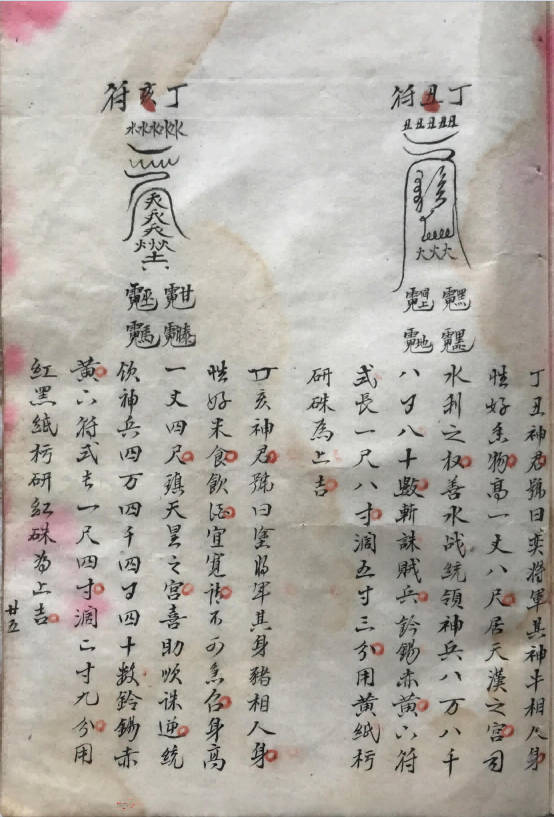 丁丑符
丑丑丑丑丑
火火火
丁丑神君號曰奕將軍其神牛相人身
性好物高一丈八尺居天漢之宮司
水利之权善水战統領神兵八万八千
八百八十數斬誅賊兵鈴錫赤黄六符
式長一尺八寸濶五寸三分用黄紙
研硃為上吉
丁亥符
水水水水水
丁亥神君號曰塗將軍其身豬相人身
性好米食飲酒宜寬請不可急召身高
一丈四尺鎮天罡之宮喜助順誅逆統
领神兵四万四千四百四十數鈴錫赤
黄六符式长一尺四寸濶二寸九分用
紅黑紙研紅硃為上吉
廿五